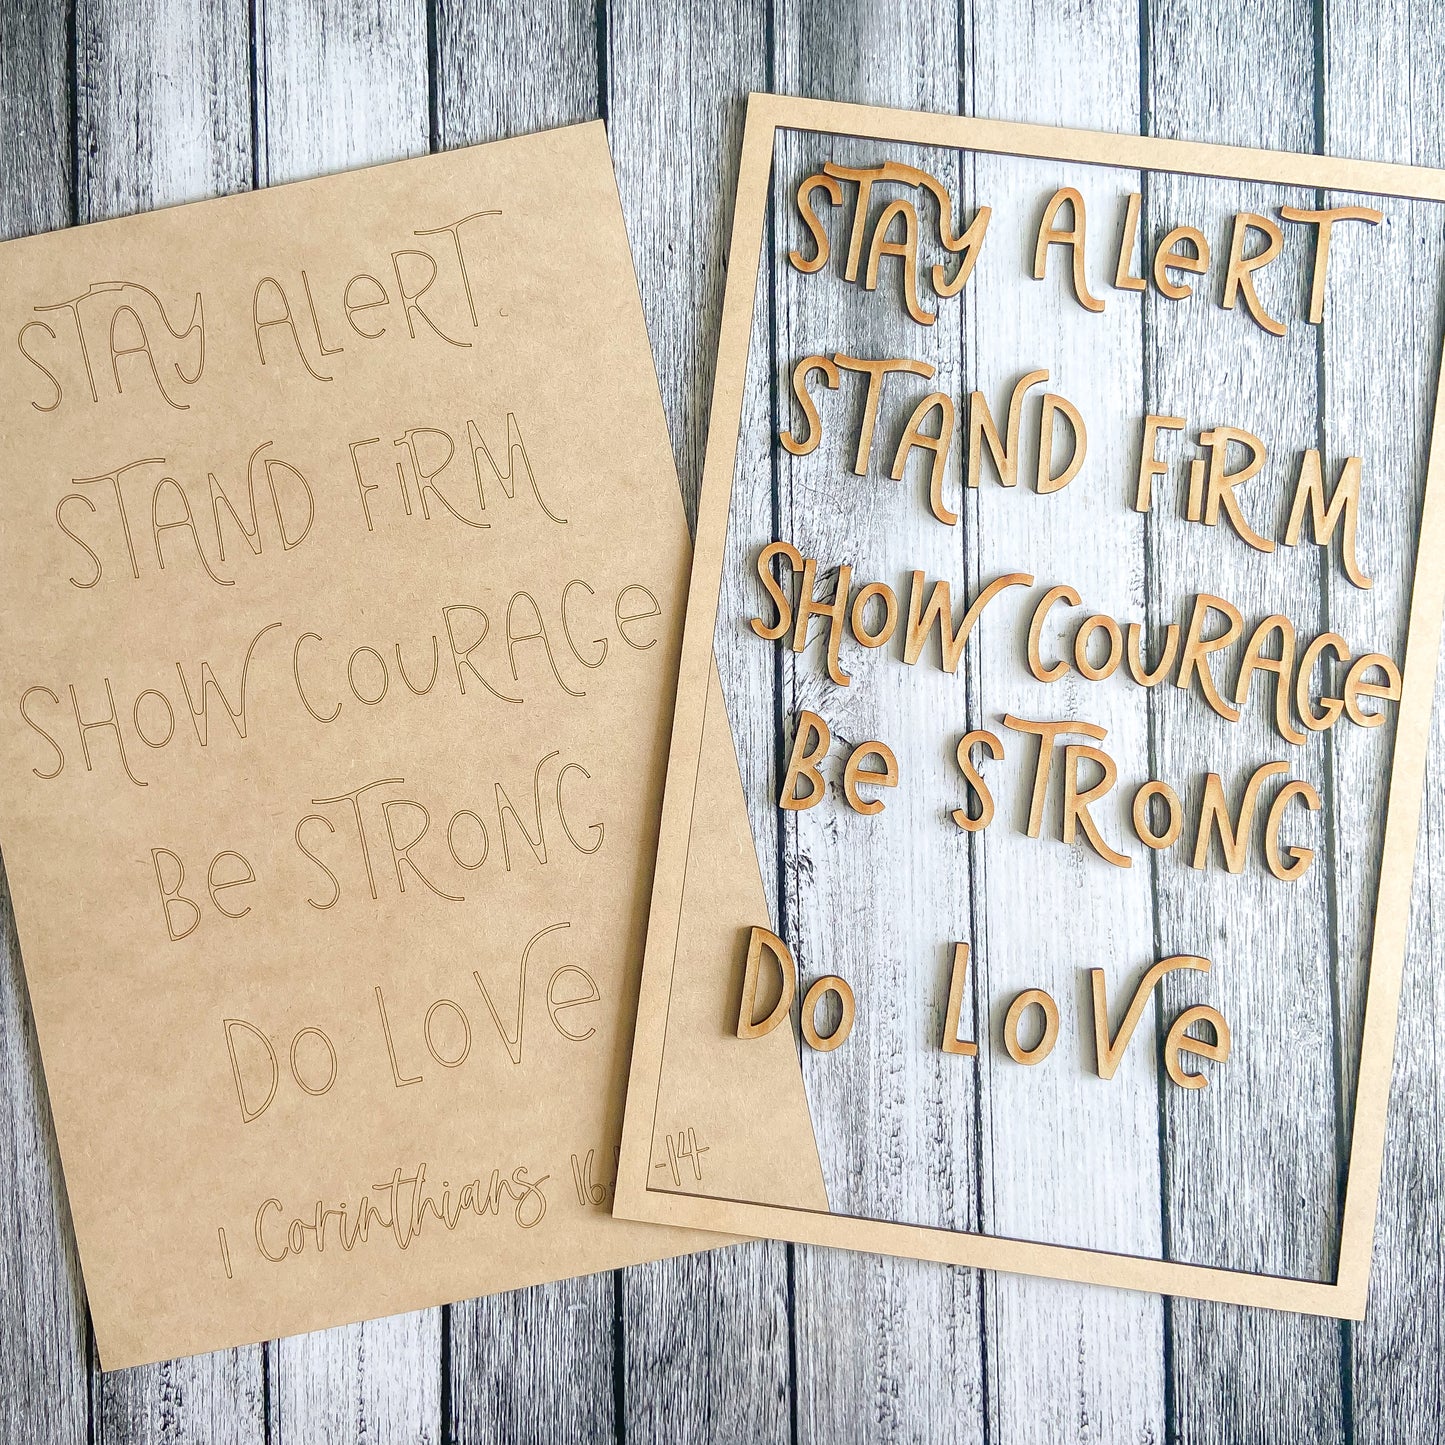 STAY ALeRT
STAND FiRM
SHOW COURAGe
Be STRONG
Do LoVe
1 Corinthians 16: -14
STAY ALeRT
STAND FiRM
SHOW COURAGe
Be STRONG
Do LoVe